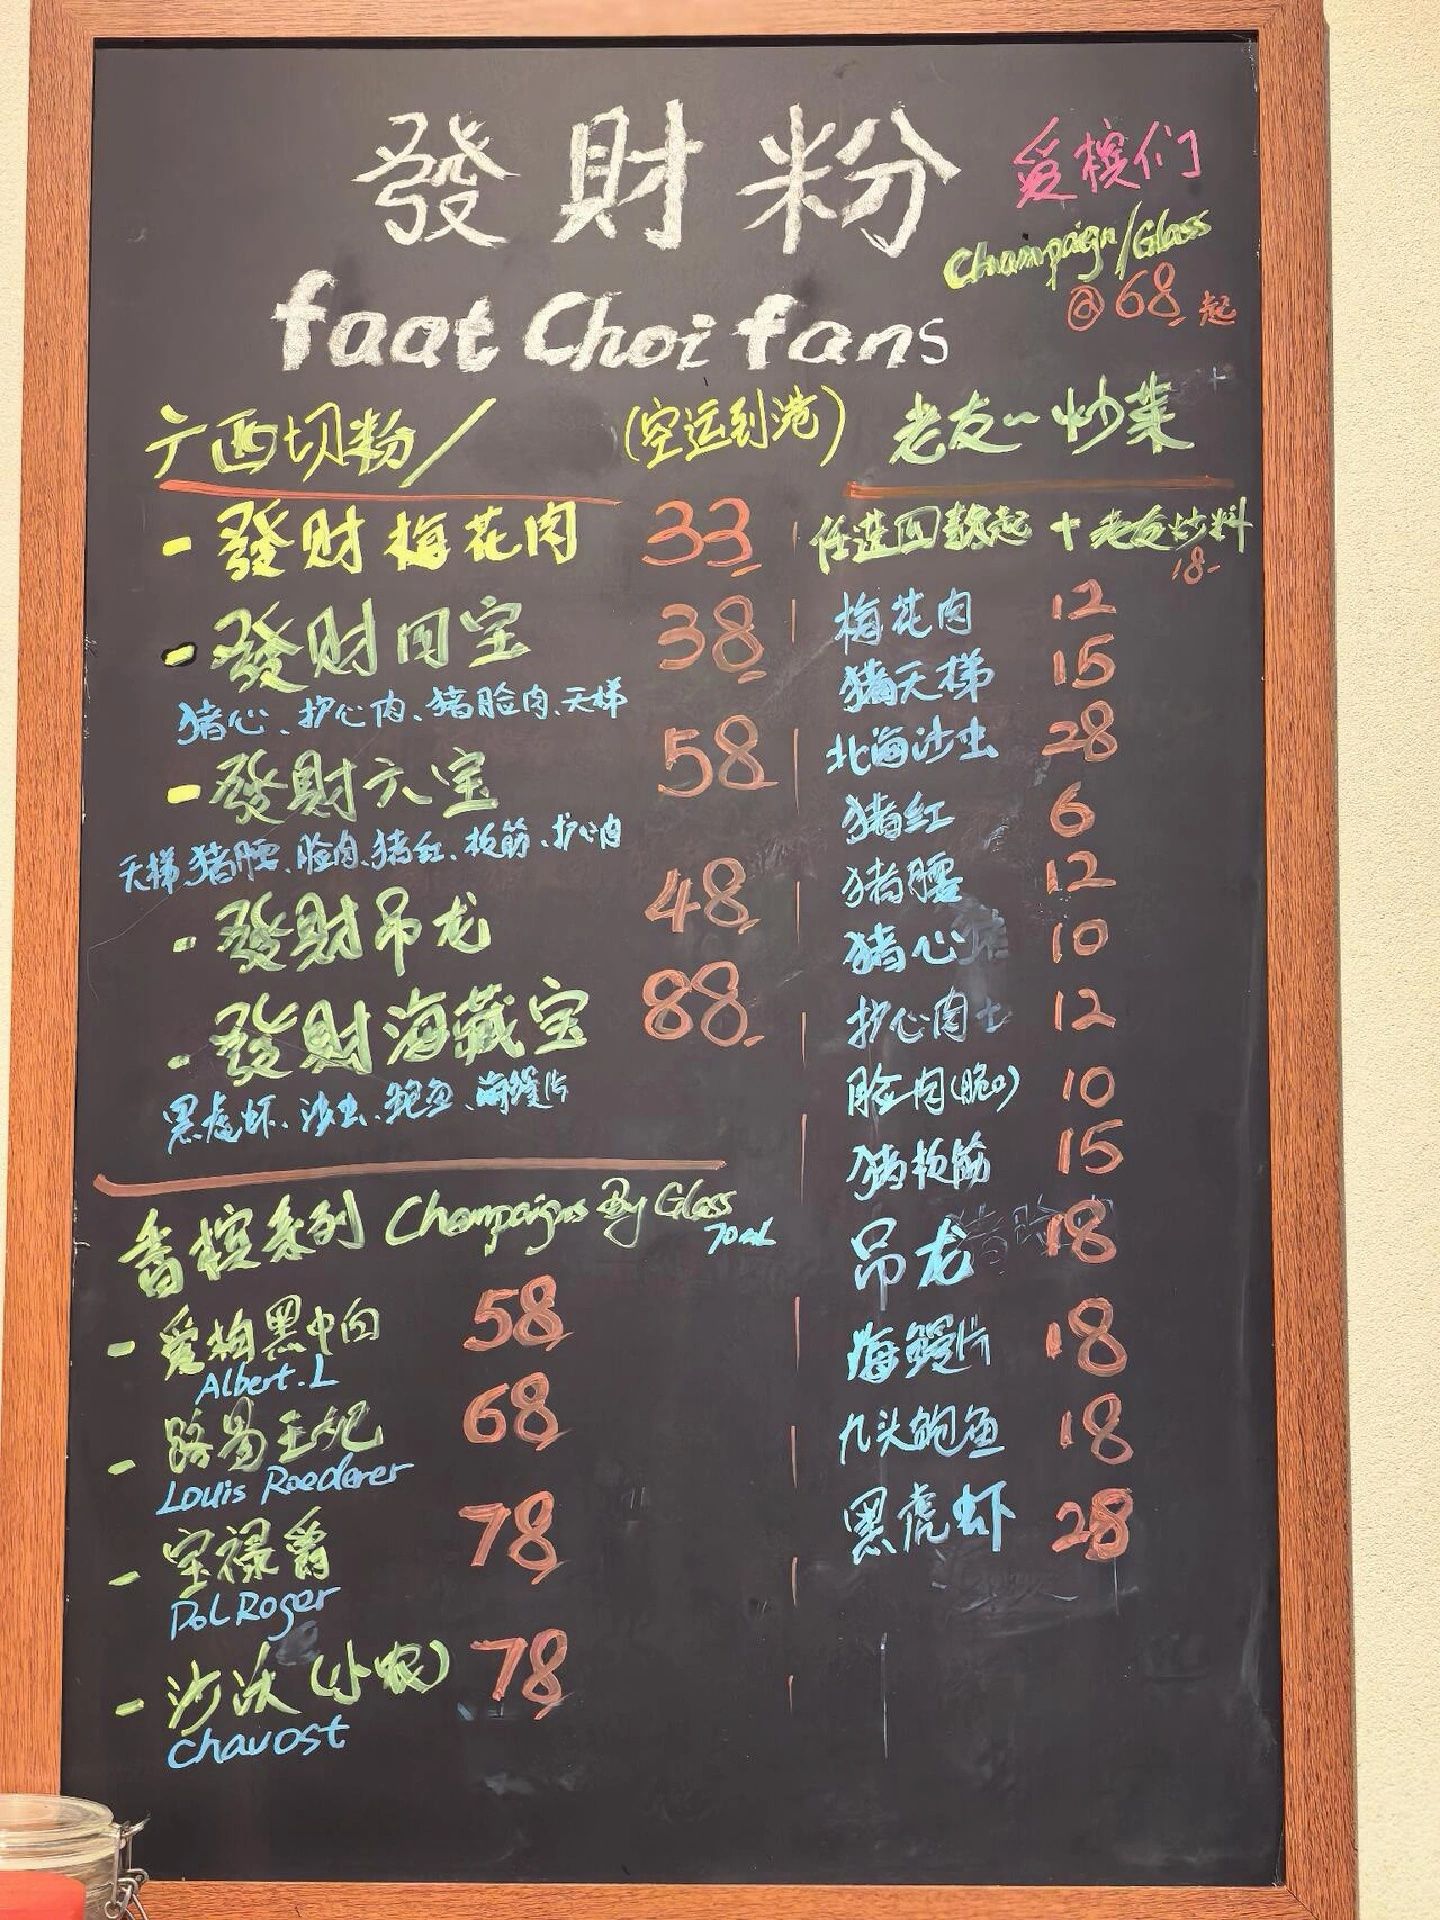 發財粉
爱槟们
faat Choi fans
Champaign/Glass
@68起
广西切粉/ (空运到港)
- 發財梅花肉 33
- 發財四宝 38
猪心、护心肉、猪脸肉、天梯
- 發財六宝 58
天梯、猪腰、脸肉、猪红、板筋、护心肉
- 發財吊龙 48
- 發財海藏宝 88
黑虎虾、沙虫、鲍鱼、海鳗片
香槟系列 Champaigns By Glass
70ml
- 爱梅黑中白 58
Albert.L
- 路易王妃 68
Louis Roederer
- 宝禄爵 78
Pol Roger
- 沙沃(小农) 78
Chavost
老友~炒菜
任选四款起 + 老友炒料
18-
梅花肉 12
猪天梯 15
北海沙虫 28
猪红 6
猪腰 12
猪心 10
护心肉 12
脸肉(脆口) 10
猪板筋 15
吊龙 18
海鳗片 18
九头鲍鱼 18
黑虎虾 28